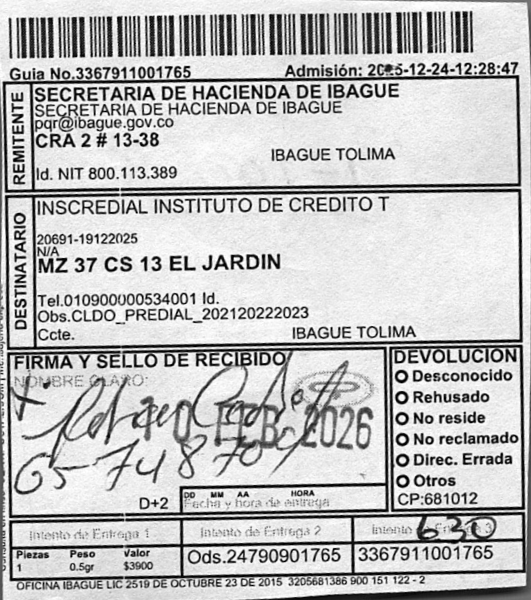 Guia No.3367911001765 Admisión: 2025-12-24-12:28:47
REMITENTE
SECRETARIA DE HACIENDA DE IBAGUE
SECRETARIA DE HACIENDA DE IBAGUE
pqr@ibague.gov.co
CRA 2 # 13-38
IBAGUE TOLIMA
Id. NIT 800.113.389
DESTINATARIO
INSCREDIAL INSTITUTO DE CREDITO T
20691-19122025
N/A
MZ 37 CS 13 EL JARDIN
Tel.010900000534001 Id.
Obs.CLDO_PREDIAL_202120222023
Ccte. IBAGUE TOLIMA
FIRMA Y SELLO DE RECIBIDO
NOMBRE CLARO:
10 FEB 2026
65748709
D+2
DD MM AA HORA
Fecha y hora de entrega
DEVOLUCION
Desconocido
Rehusado
No reside
No reclamado
Direc. Errada
Otros
CP:681012
Intento de Entrega 1 Intento de Entrega 2 Intento de Entrega 3
630
Piezas Peso Valor
1 0.5gr $3900
Ods.24790901765
3367911001765
OFICINA IBAGUE LIC 2519 DE OCTUBRE 23 DE 2015 3205681386 900 151 122 - 2